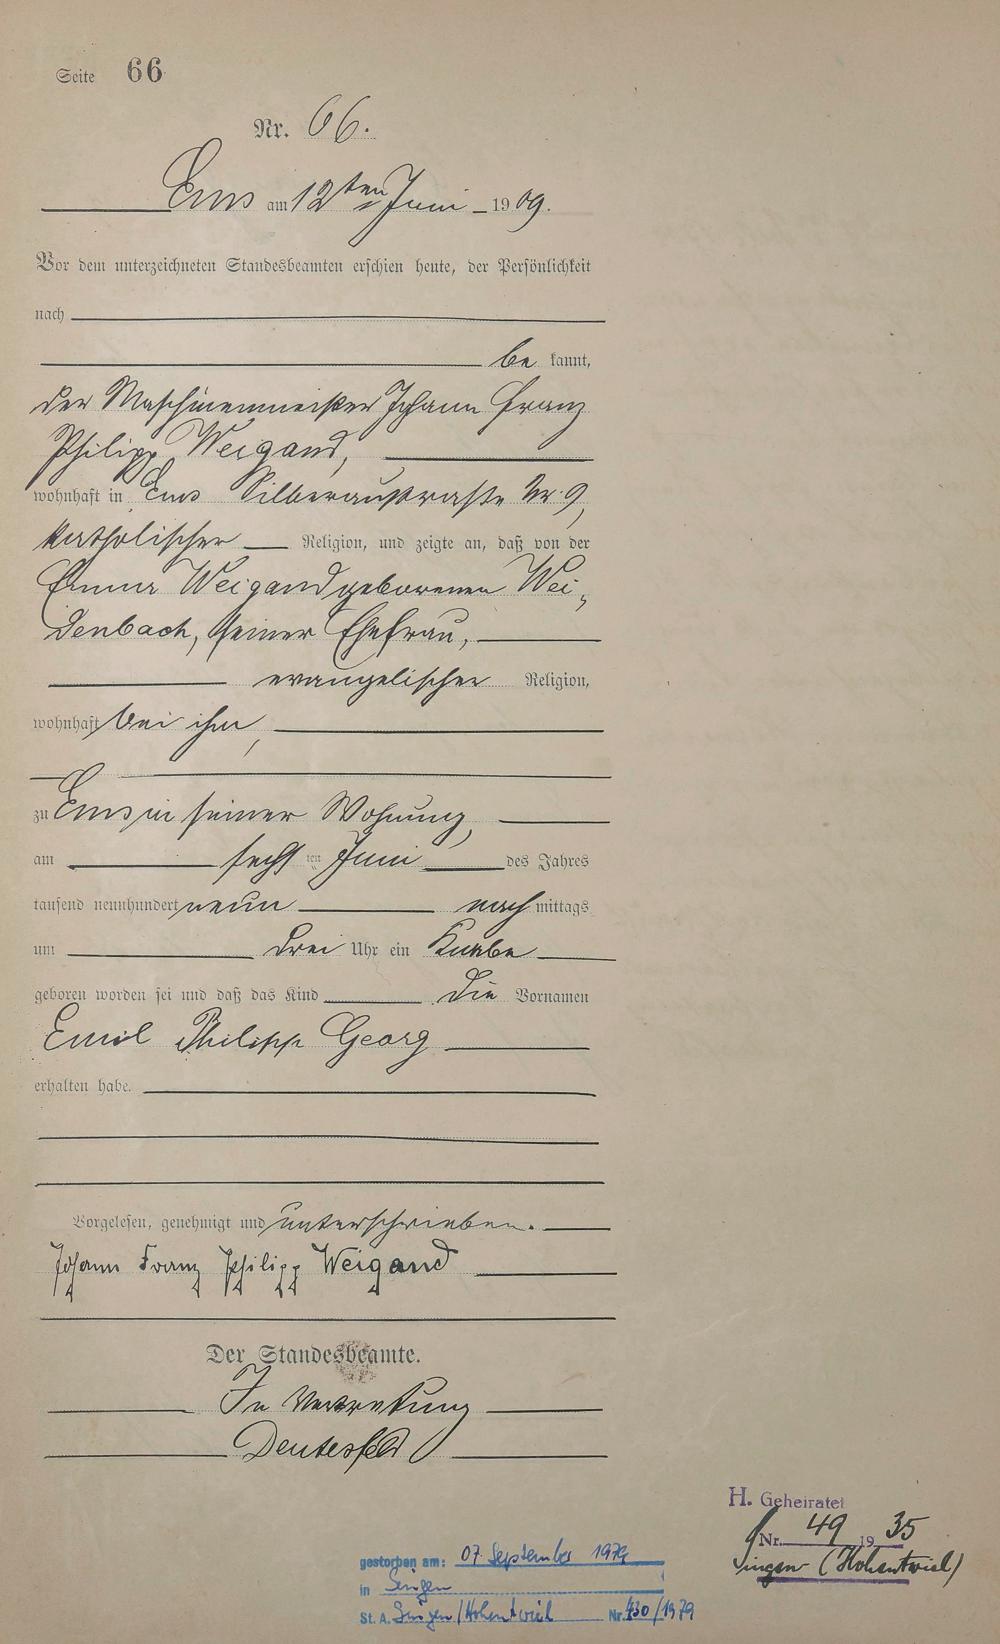 Seite 66
Nr. 66.
Ems am 12ten Juni 1909.
Vor dem unterzeichneten Standesbeamten erschien heute, der Persönlichkeit
nach
be kannt,
der Maschinenmeister Johann Franz
Philipp Weigand,
wohnhaft in Ems Silberaustraße Nr. 9,
katholischer Religion, und zeigte an, daß von der
Emma Weigand geborenen Wei-
denbach, seiner Ehefrau,
evangelischer Religion,
wohnhaft bei ihm,
zu Ems in seiner Wohnung,
am sechsten Juni des Jahres
tausend neunhundert neun nachmittags
um drei Uhr ein Knabe
geboren worden sei und daß das Kind die Vornamen
Emil Philipp Georg
erhalten habe.
Vorgelesen, genehmigt und unterschrieben.
Johann Franz Philipp Weigand
Der Standesbeamte.
In Vertretung
H. Geheiratet
Nr. 49 1935
Singen (Hohentwiel)
gestorben am: 07. September 1979
in Singen
St. A. Singen/Hohentwiel Nr. 430/1979